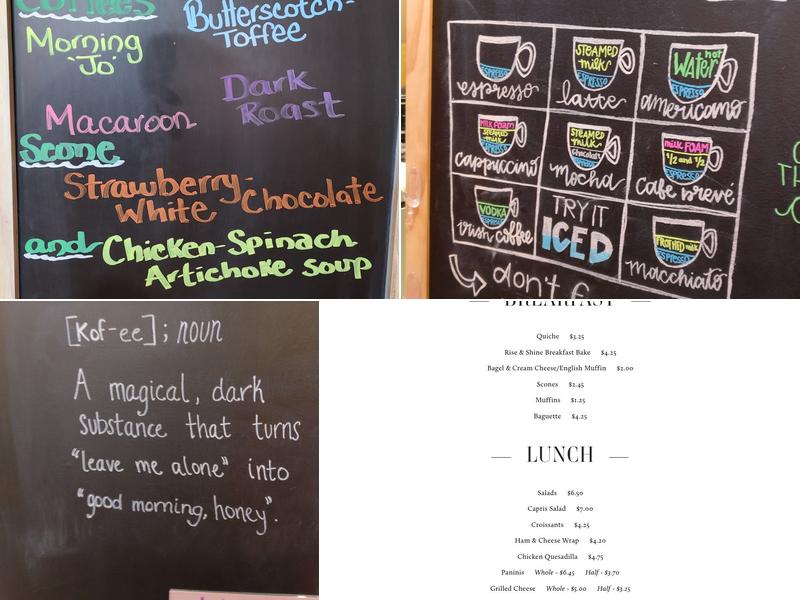 Coffees
Butterscotch-
Toffee
Morning
'Jo'
Dark
Roast
Macaroon
Scone
Strawberry-
White Chocolate
and Chicken-Spinach
Artichoke Soup
espresso
espresso
STEAMED
milk
ESPRESSO
latte
hot
WATER
ESPRESSO
americano
MILK FOAM
STEAMED
milk
ESPRESSO
cappuccino
STEAMED
milk
chocolate
ESPRESSO
mocha
milk FOAM
1/2 and 1/2
ESPRESSO
café brevé
VODKA
ESPRESSO
irish coffee
TRY IT
ICED
FROTHED milk
ESPRESSO
macchiato
don't f
[Kof-ee]; noun
A magical, dark
substance that turns
"leave me alone" into
"good morning, honey".
BREAKFAST
Quiche $3.25
Rise & Shine Breakfast Bake $4.25
Bagel & Cream Cheese/English Muffin $2.00
Scones $2.45
Muffins $1.25
Baguette $4.25
LUNCH
Salads $6.50
Capris Salad $7.00
Croissants $4.25
Ham & Cheese Wrap $4.20
Chicken Quesadilla $4.75
Paninis Whole - $6.45 Half - $3.70
Grilled Cheese Whole - $5.00 Half - $3.25